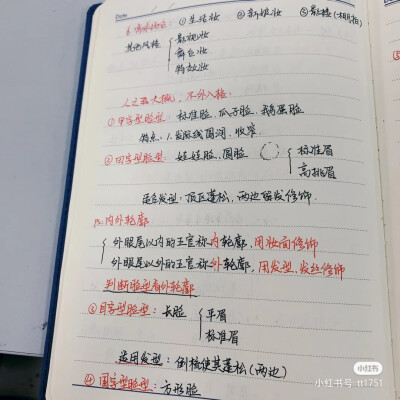 Date
①生活妆 ②新娘妆 ③影楼(相拍)
其他风格
影视妆
舞台妆
特效妆
①甲字型脸型: 标准脸. 瓜子脸. 鹅蛋脸
特点: 1. 发际线圆润. 收窄
②田字型脸型: 娃娃脸. 圆脸
标准眉
高挑眉
适合发型: 顶区蓬松, 两边留发修饰.
内外轮廓
外眼尾以内的五官称内轮廓, 用妆面修饰
外眼尾以外的五官称外轮廓, 用发型、发丝修饰
判断脸型看外轮廓
③目字型脸型: 长脸
平眉
标准眉
适用发型: 倒梳使其蓬松(两边)
④国字型脸型: 方形脸
小红书
小红书号: tt1751